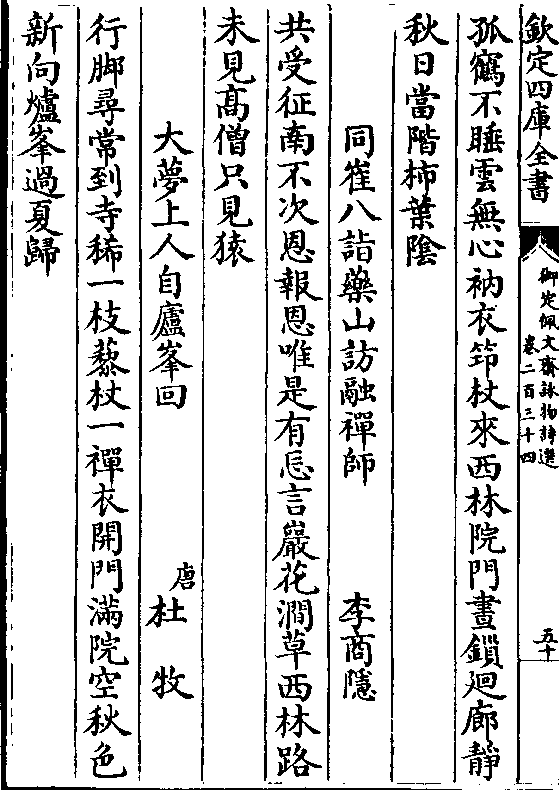 欽定四庫全書
御定佩文齋詠物詩選
卷二百三十四
五十
孤鶴不睡雲無心衲衣筇杖來西林院門晝鎖迴廊靜
秋日當階柿葉陰
同崔八詣藥山訪融禪師 李商隱
共受征南不次恩報恩唯是有忘言巖花澗草西林路
未見高僧只見猿
大夢上人自廬峯回 唐 杜牧
行脚尋常到寺稀一枝藜杖一禪衣開門滿院空秋色
新向爐峯過夏歸